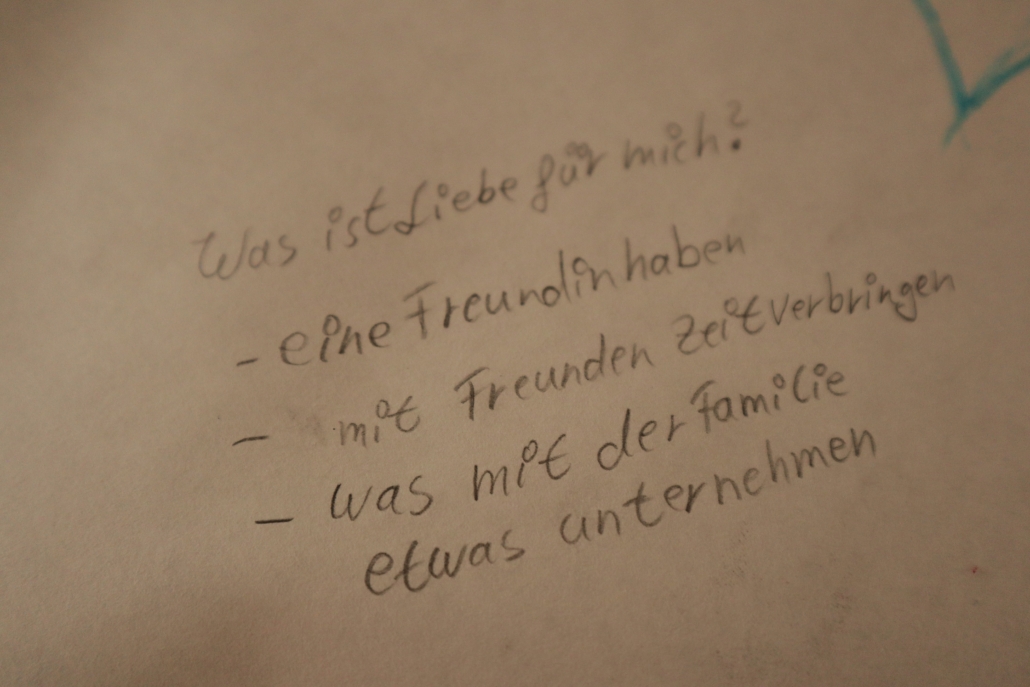 Was ist Liebe für mich?
- eine Freundin haben
- mit Freunden Zeit verbringen
- was mit der Familie
etwas unternehmen